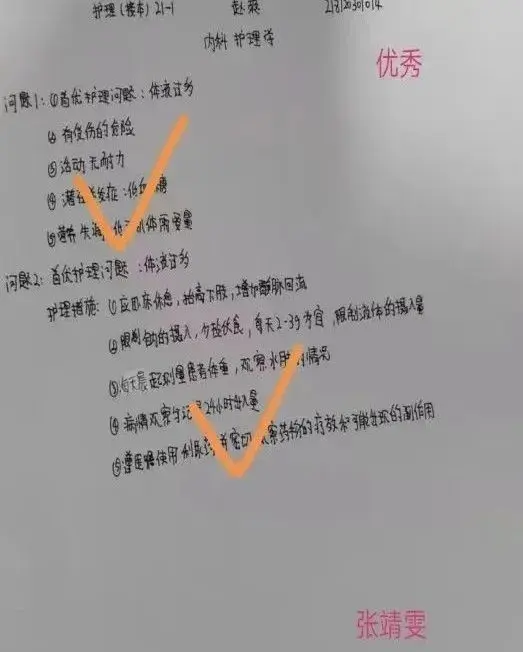 护理(接本)21-1 赵燊 218120301014
内科护理学
优秀
问题1:①首优护理问题:体液过多
②有受伤的危险
③活动无耐力
④潜在并发症:低血糖
⑤营养失调:低于机体需要量
问题2:首优护理问题:体液过多
护理措施:①应卧床休息,抬高下肢,增加静脉回流
②限制钠的摄入,少盐饮食,每天2-3g为宜,限制液体的摄入量
③每天晨起测量患者体重,观察水肿的情况
④病情观察与记录24小时出入量
⑤遵医嘱使用利尿药并密切观察药物的疗效和可能出现的副作用
张靖雯